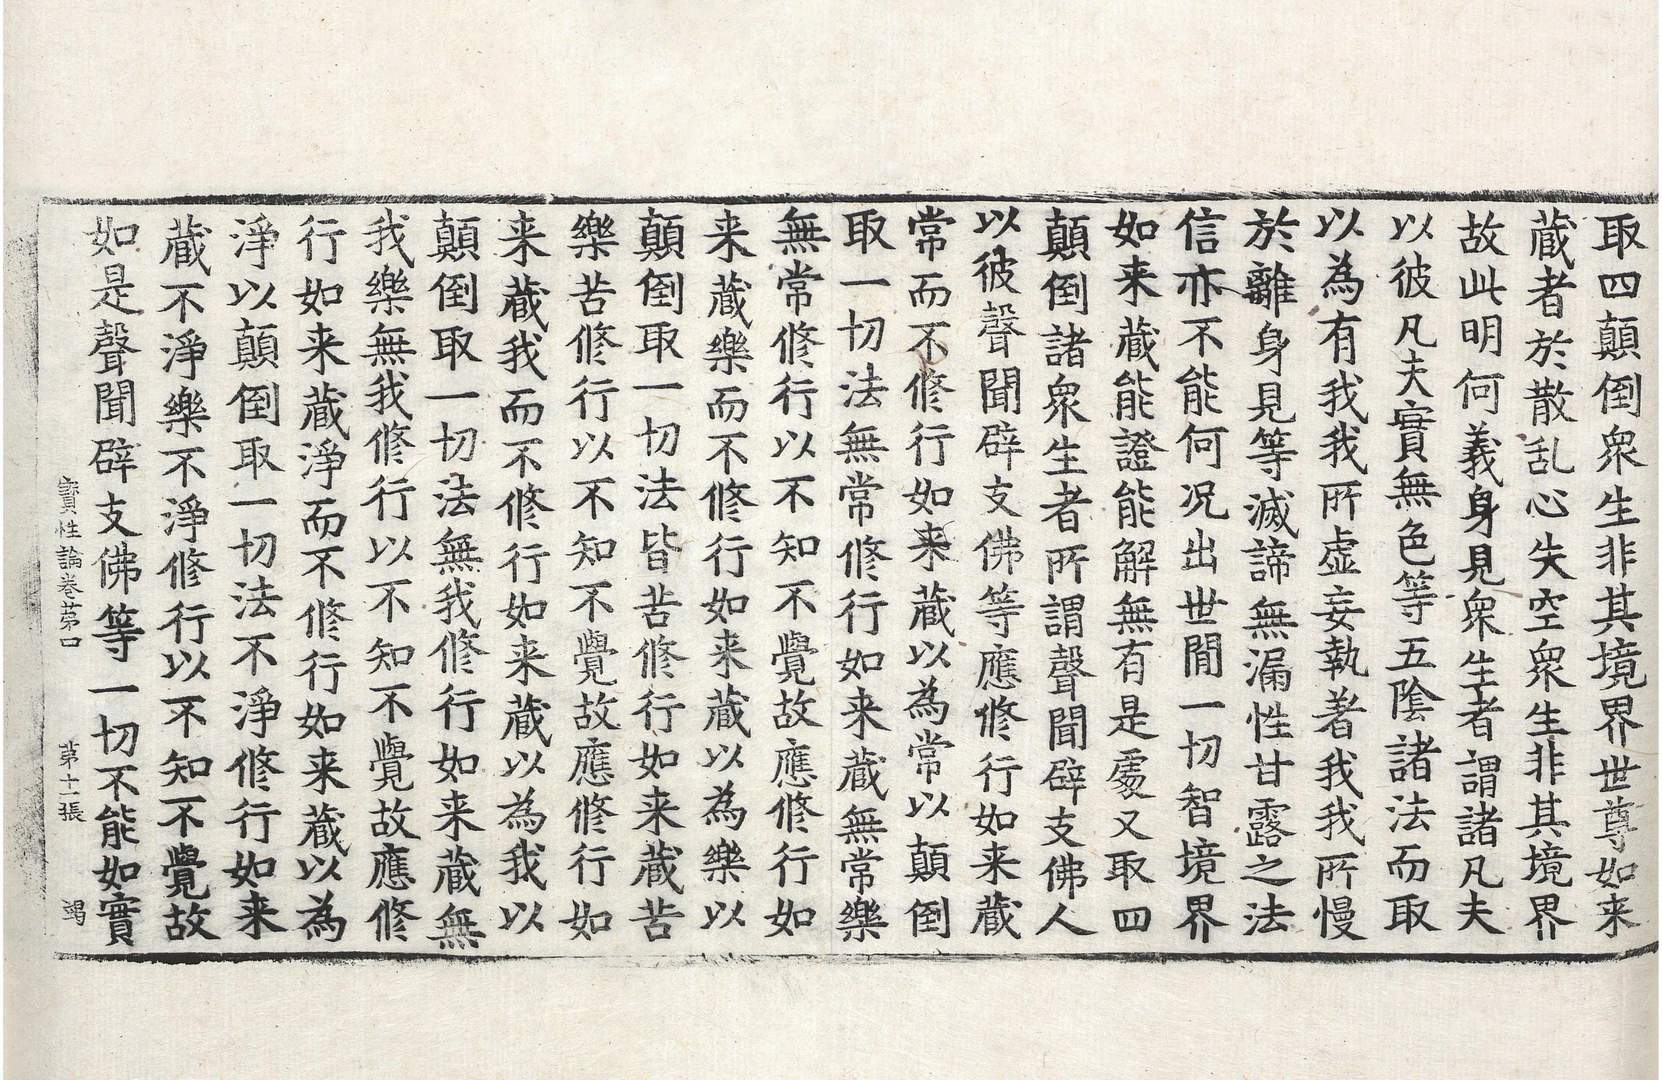 取四顛倒衆生非其境界世尊如来
蔵者於散乱心失空衆生非其境界
故此明何義身見衆生者謂諸凡夫
以彼凡夫實無色等五陰諸法而取
以為有我我所虚妄執著我我所慢
於離身見等滅諦無漏性甘露之法
信亦不能何況出世間一切智境界
如来蔵能證能解無有是處又取四
顛倒諸衆生者所謂聲聞辟支佛人
以彼聲聞辟支佛等應修行如来蔵
常而不修行如来蔵以為常以顛倒
取一切法無常修行如来蔵無常樂
無常修行以不知不覺故應修行如
来蔵樂而不修行如来蔵以為樂以
顛倒取一切法皆苦修行如来蔵苦
樂苦修行以不知不覺故應修行如
来蔵我而不修行如来蔵以為我以
顛倒取一切法無我修行如来蔵無
我樂無我修行以不知不覺故應修
行如来蔵淨而不修行如来蔵以為
淨以顛倒取一切法不淨修行如来
蔵不淨樂不淨修行以不知不覺故
如是聲聞辟支佛等一切不能如實
寶性論卷苐口 苐十一張 鴻